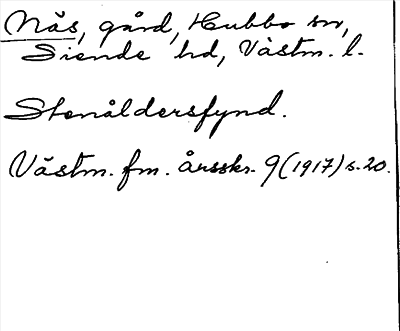 Näs, gård, Hubbo sn,
Siende hd, Västm. l.
Stenåldersfynd.
Västm. fm. årsskr. 9 (1917) s. 20.